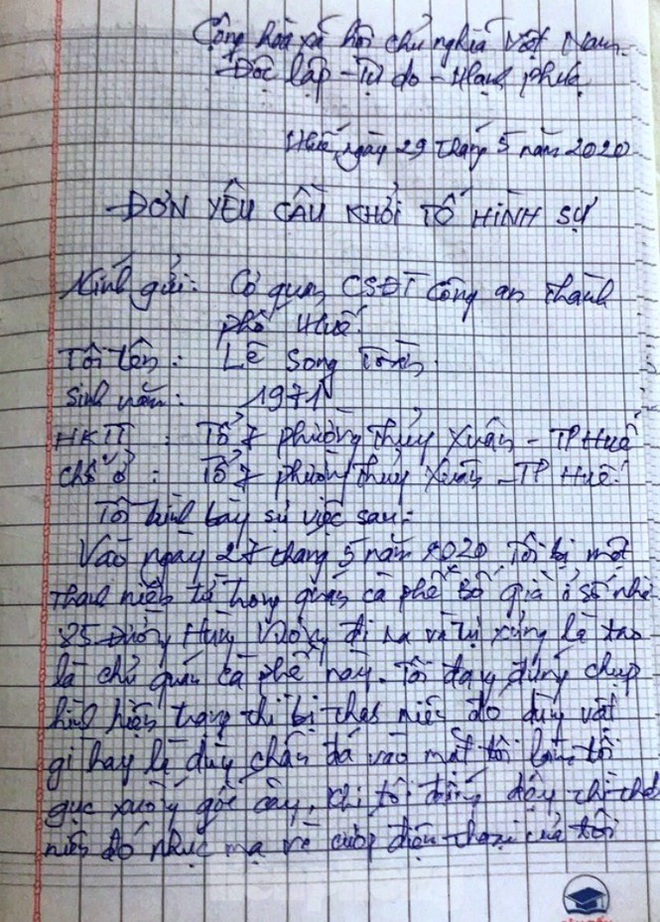 Cộng hòa xã hội chủ nghĩa Việt Nam
Độc lập - Tự do - Hạnh phúc
Huế, ngày 29 tháng 5 năm 2020
ĐƠN YÊU CẦU KHỞI TỐ HÌNH SỰ
Kính gửi: Cơ quan CSĐT Công an thành
phố Huế.
Tôi tên: Lê Song Toàn
Sinh năm: 1971
HKTT: Tổ 7 phường Thủy Xuân - TP Huế
Chỗ ở: Tổ 7 phường Thủy Xuân - TP Huế.
Tôi trình bày sự việc sau:
Vào ngày 27 tháng 5 năm 2020, tôi bị một
thanh niên từ trong quán cà phê Bố già ở số nhà
85 Đường Hùng Vương đi ra và tự xưng là tao
là chủ quán cà phê này. Tôi đang đứng chụp
hình hiện trạng thì bị thanh niên đó dùng vật
gì hay là dùng chân đá vào mặt tôi làm tôi
gục xuống gốc cây, khi tôi đứng dậy thì thanh
niên đó nhục mạ và cướp điện thoại của tôi